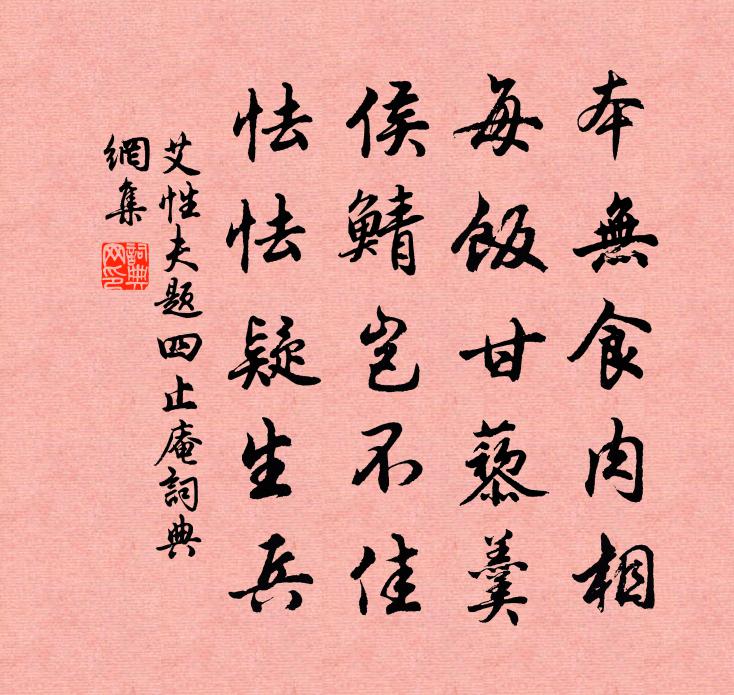 本無食肉相
每飯甘藜羹
侯鯖豈不佳
怯怯疑生兵
艾性夫題四止庵詞典
網集
詞典
网印